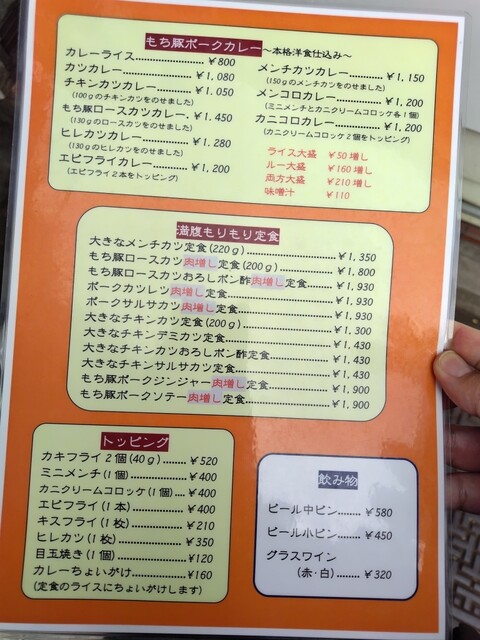 もち豚ポークカレー～本格洋食仕込み～
カレーライス……………………￥800
カツカレー……………………￥1,080
チキンカツカレー……………￥1.050
(100gのチキンカツをのせました)
もち豚ロースカツカレー.￥1.450
(130gのロースカツをのせました)
ヒレカツカレー………………￥1.280
(130gのヒレカツをのせました)
エビフライカレー……………￥1,200
(エビフライ2本をトッピング)
メンチカツカレー……………￥1,150
(150gのメンチカツをのせました)
メンコロカレー………………￥1,200
(ミニメンチとカニクリームコロッケ各1個)
カニコロカレー………………￥1,200
(カニクリームコロッケ2個をトッピング)
ライス大盛 ￥50増し
ルー大盛 ￥160増し
両方大盛 ￥210増し
味噌汁 ￥110
満腹もりもり定食
大きなメンチカツ定食(220g)……………………￥1,350
もち豚ロースカツ肉増し定食(200g)……………￥1,800
もち豚ロースカツおろしポン酢肉増し定食………￥1,930
ポークカツレツ肉増し定食…………………………￥1,930
ポークサルサカツ肉増し定食………………………￥1,930
大きなチキンカツ定食(200g)……………………￥1,300
大きなチキンデミカツ定食…………………………￥1,430
大きなチキンカツおろしポン酢定食………………￥1,430
大きなチキンサルサカツ定食………………………￥1,430
もち豚ポークジンジャー肉増し定食………………￥1,900
もち豚ポークソテー肉増し定食……………………￥1,900
トッピング
カキフライ2個(40g)………￥520
ミニメンチ(1個)……………￥400
カニクリームコロッケ(1個)…￥400
エビフライ(1本)……………￥400
キスフライ(1枚)……………￥210
ヒレカツ(1枚)………………￥350
目玉焼き(1個)………………￥120
カレーちょいがけ……………￥160
(定食のライスにちょいがけします)
飲み物
ビール中ビン………￥580
ビール小ビン………￥450
グラスワイン
(赤・白)………￥320